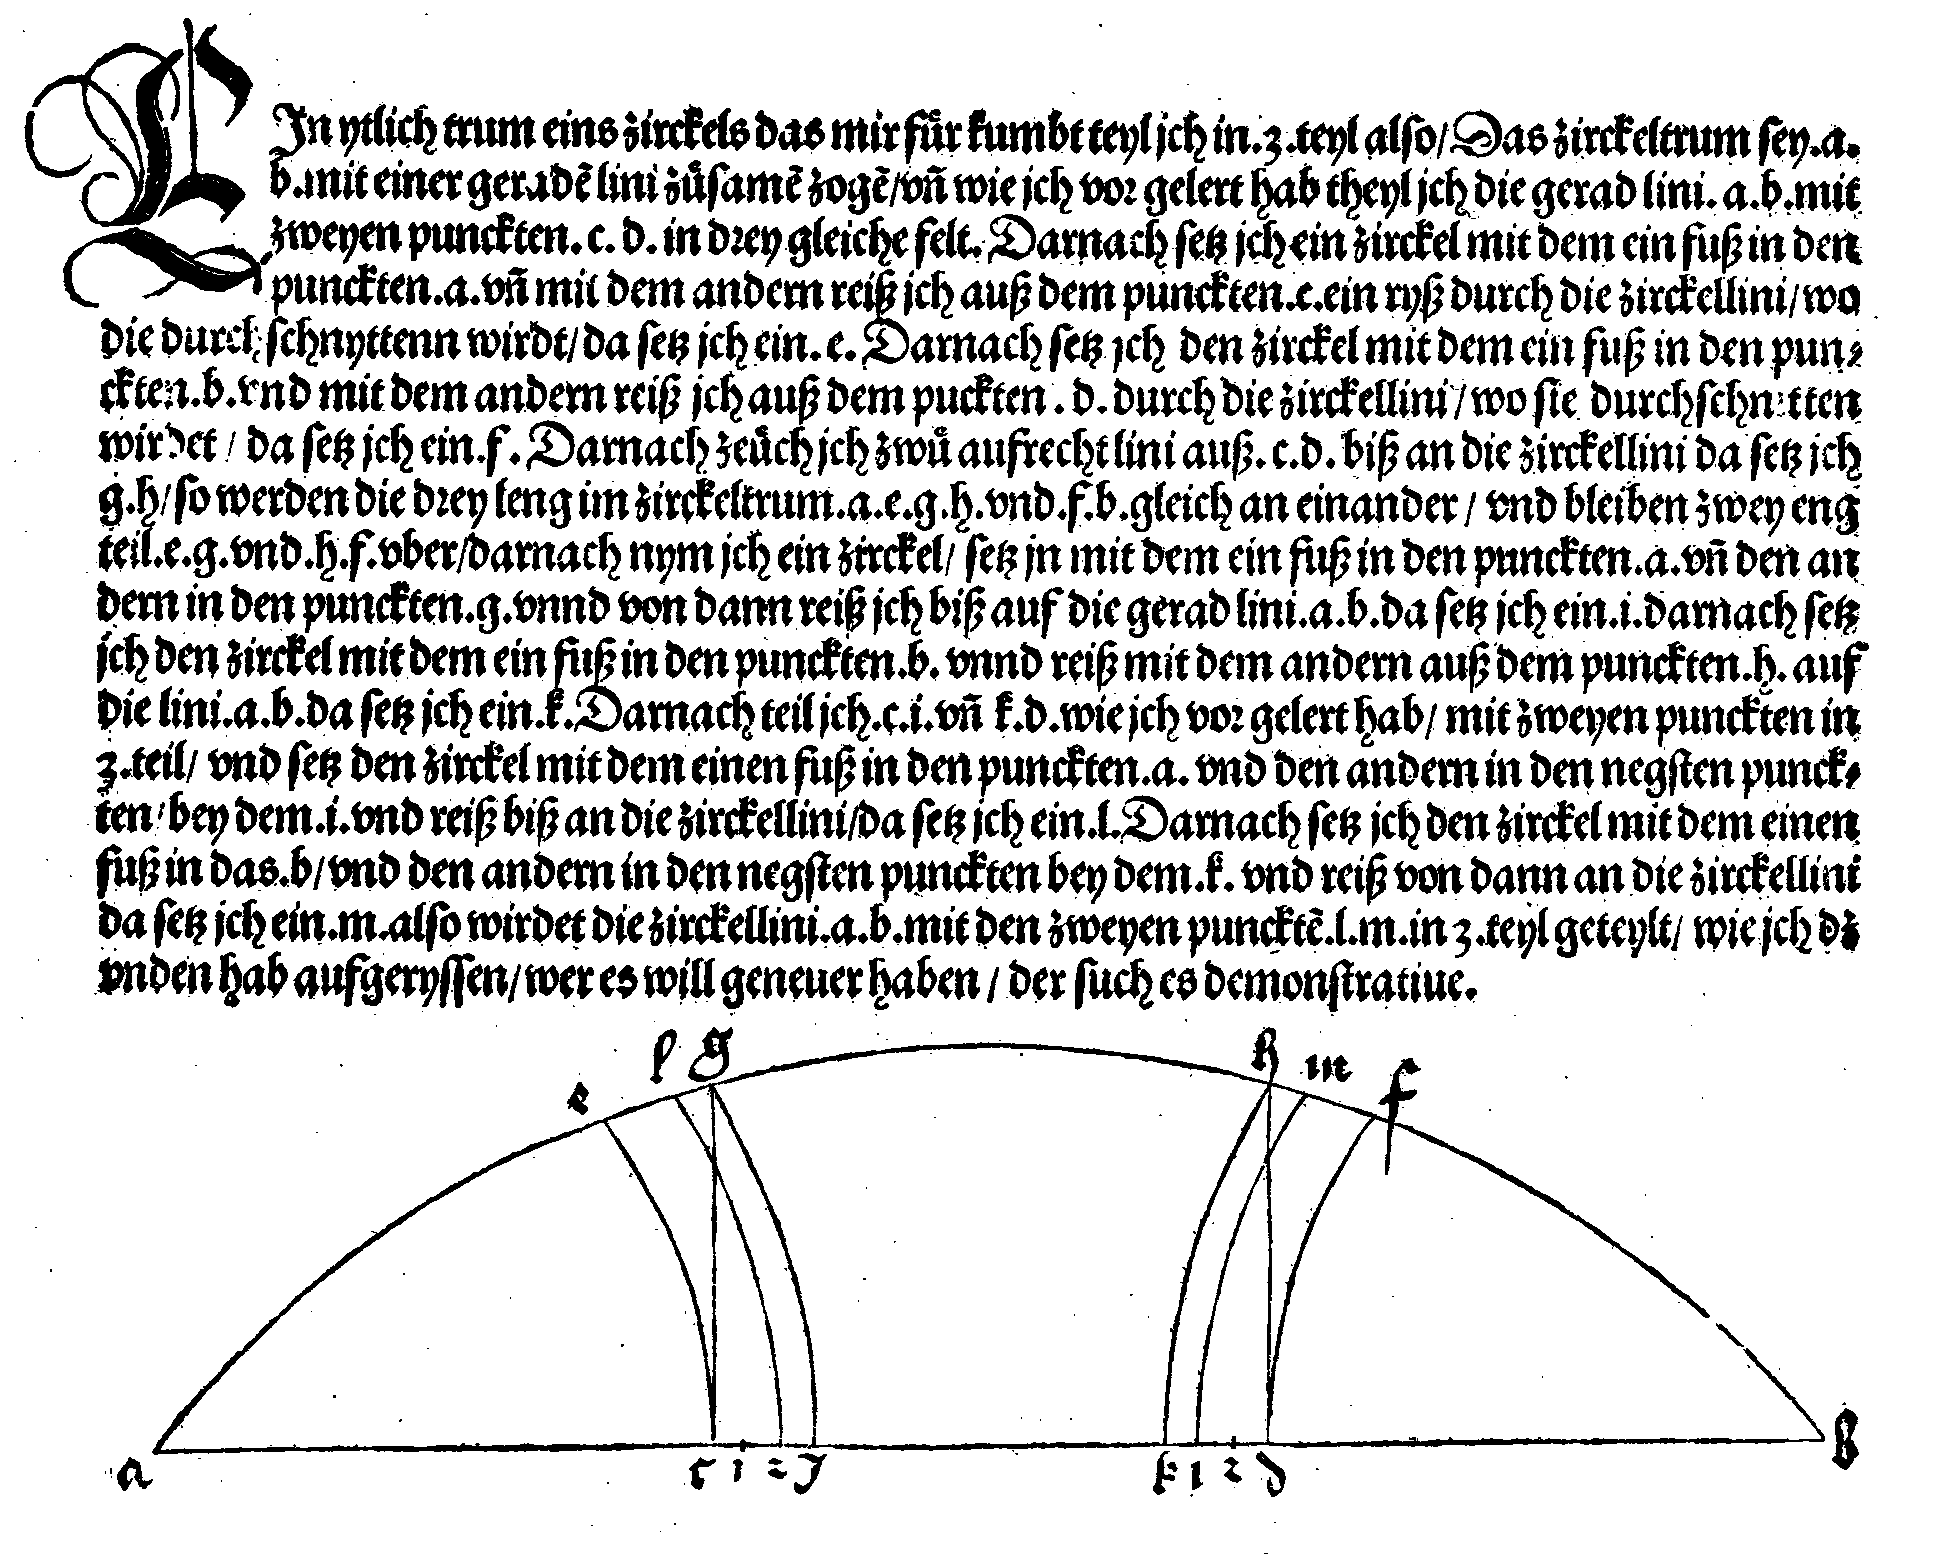 EIn ytlich trum eins zirckels das mir fuͤr kumbt teyl jch in.3.teyl also/Das zirckeltrum sey.a.
b.mit einer geradẽ lini zuͤsamẽ zogẽ/vñ wie jch vor gelert hab theyl jch die gerad lini. a.b.mit
zweyen punckten. c. d. in drey gleiche felt. Darnach setz jch ein zirckel mit dem ein fuß in den
punckten.a.vñ mit dem andern reiß jch auß dem punckten.c.ein ryß durch die zirckellini/wo
die durch schnyttenn wirdt/da setz jch ein. e. Darnach setz jch den zirckel mit dem ein fuß in den pun⸗
ckten.b.vnd mit dem andern reiß jch auß dem puckten . d. durch die zirckellini/wo sie durchschnitten
wirdet / da setz jch ein.f. Darnach zeuͤch jch zwuͤ aufrecht lini auß. c.d. biß an die zirckellini da setz jch
g.h/so werden die drey leng im zirckeltrum.a.e.g.h.vnd.f.b.gleich an einander / vnd bleiben zwey eng
teil.e.g.vnd.h.f.vber/darnach nym jch ein zirckel/ setz jn mit dem ein fuß in den punckten.a.vñ den an
dern in den punckten.g.vnnd von dann reiß jch biß auf die gerad lini.a.b.da setz jch ein.i.darnach setz
jch den zirckel mit dem ein fuß in den punckten.b. vnnd reiß mit dem andern auß dem punckten.h. auf
die lini.a.b.da setz jch ein.k.Darnach teil jch.c.i.vñ k.d.wie jch vor gelert hab/ mit zweyen punckten in
3.teil/ vnd setz den zirckel mit dem einen fuß in den punckten.a. vnd den andern in den negsten punck⸗
ten/bey dem.i.vnd reiß biß an die zirckellini/da setz jch ein.l.Darnach setz jch den zirckel mit dem einen
fuß in das.b/vnd den andern in den negsten punckten bey dem.k. vnd reiß von dann an die zirckellini
da setz jch ein.m.also wirdet die zirckellini.a.b.mit den zweyen puncktẽ.l.m.in 3.teyl geteylt/ wie jch dz
vnden hab aufgeryssen/wer es will geneuer haben / der such es demonstratiue.
e l g h m f
a c 1 2 J k 1 2 d b